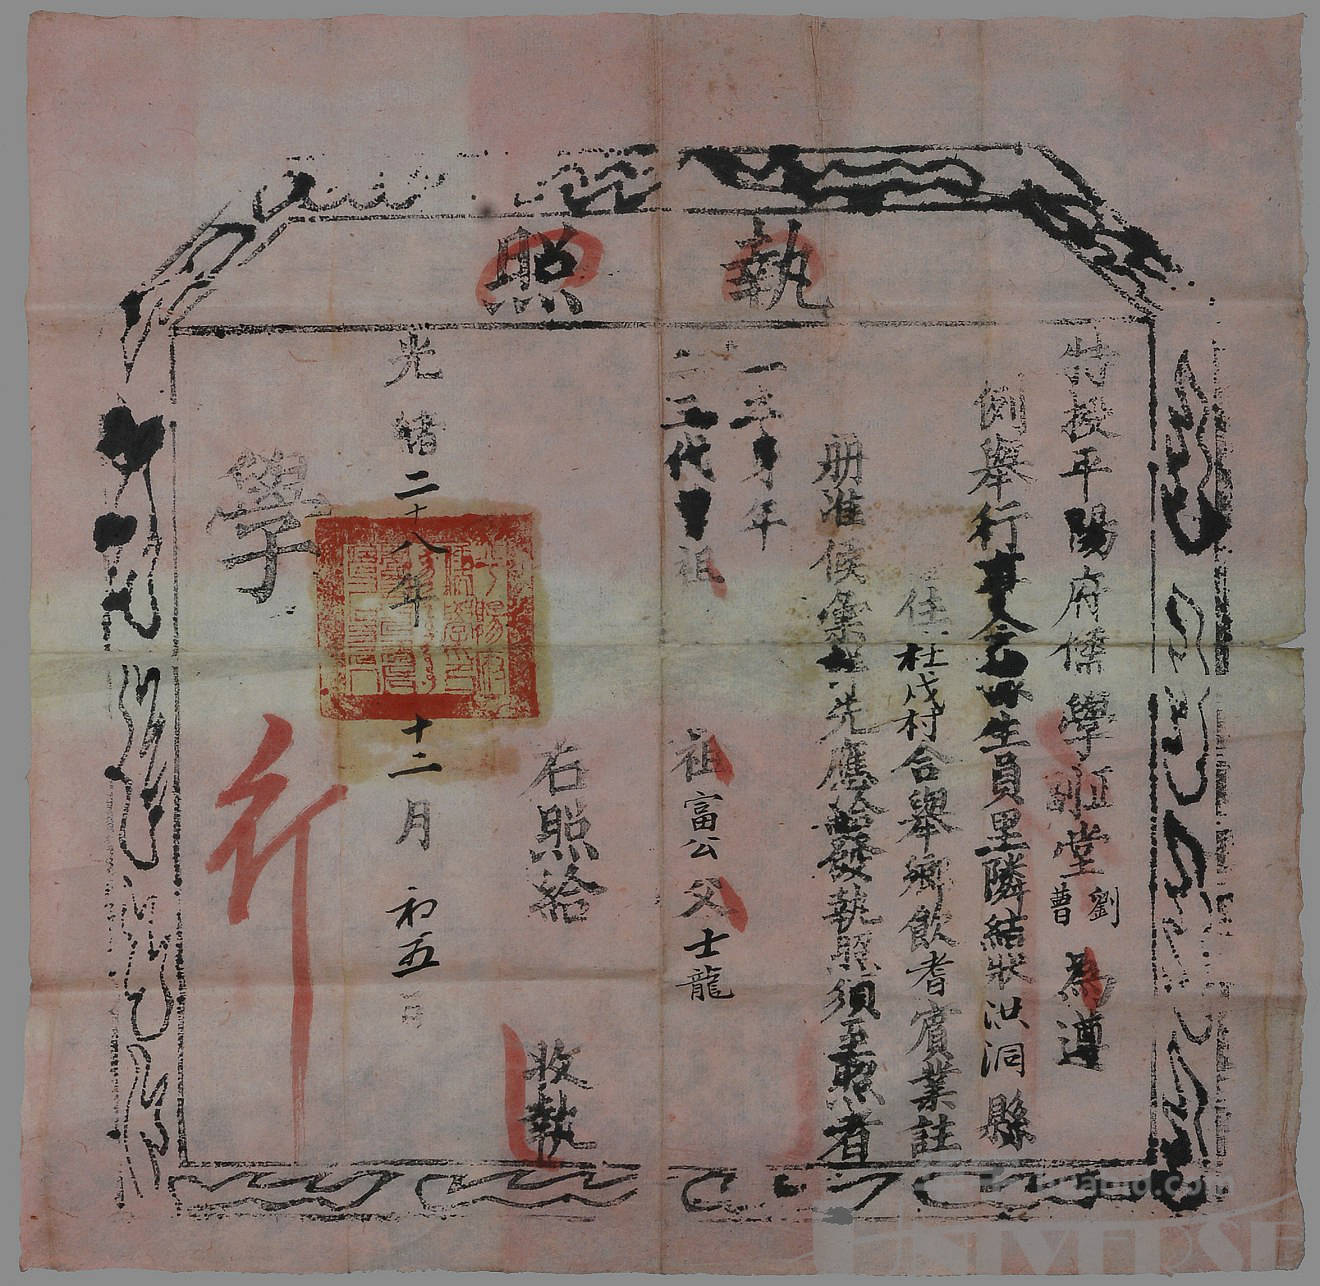 執照
特授平陽府儒學正堂劉曹為遵
例舉行事今據生員里隣結狀洪洞縣
任杜戊村合舉鄉飲耆賓業註
冊准候彙先應給發執照須至照者
一本身年
一三代曾祖 祖富公父士龍
右照給 收執
光緒二十八年十二月初五日
學行